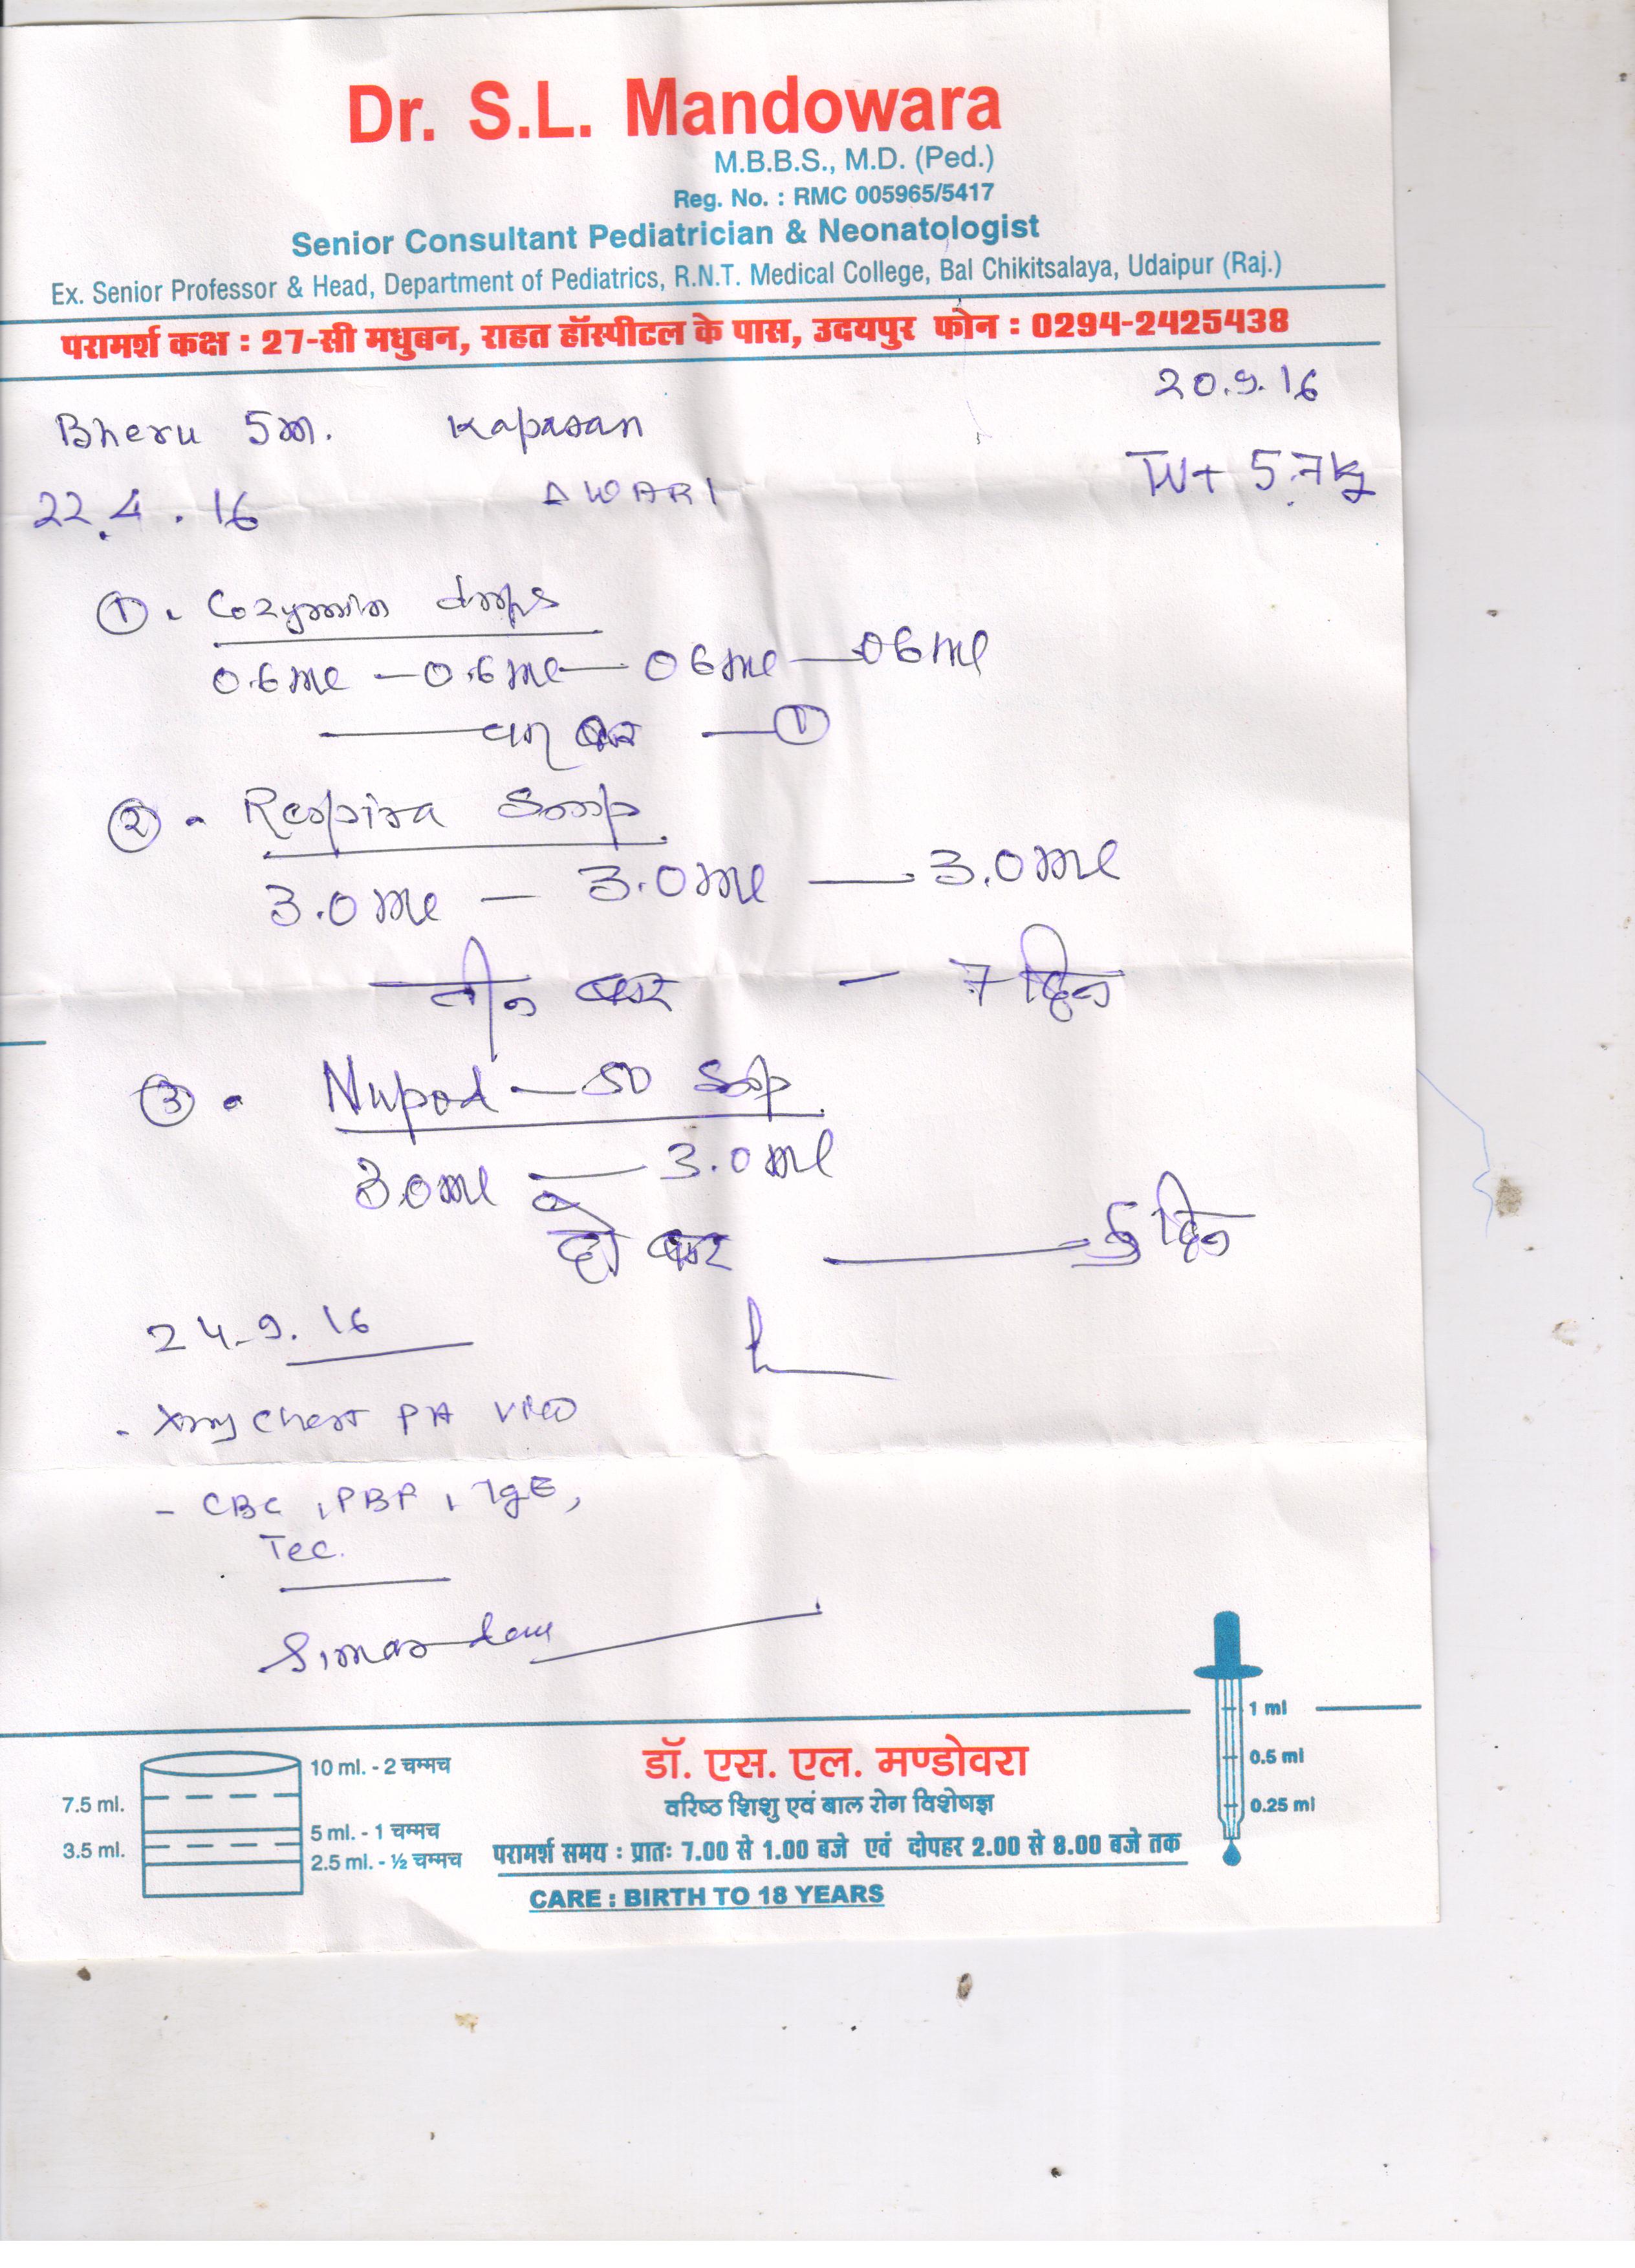 Dr. S.L. Mandowara
M.B.B.S., M.D. (Ped.)
Reg. No. : RMC 005965/5417
Senior Consultant Pediatrician & Neonatologist
Ex. Senior Professor & Head, Department of Pediatrics, R.N.T. Medical College, Bal Chikitsalaya, Udaipur (Raj.)
परामर्श कक्ष : 27-सी मधुबन, राहत हॉस्पीटल के पास, उदयपुर फोन : 0294-2425438
20.9.16
Bheru 5m. Kapasan
22.4.16 AWARI Wt 5.7kg
① Cozymin drops
0.6ml — 0.6ml — 06ml — 06ml
बार — ①
② Respira
3.0ml — 3.0ml — 3.0ml
तीन बार — 7 दिन
③ Nupod — 50
3.0ml — 3.0ml
दो बार — 5 दिन
24-9.16
- Xray Chest PA view
- CBC, PBF, IgE,
Tec.
10 ml. - 2 चम्मच
7.5 ml.
5 ml. - 1 चम्मच
3.5 ml.
2.5 ml. - ½ चम्मच
डॉ. एस. एल. मण्डोवरा
वरिष्ठ शिशु एवं बाल रोग विशेषज्ञ
परामर्श समय : प्रातः 7.00 से 1.00 बजे एवं दोपहर 2.00 से 8.00 बजे तक
CARE : BIRTH TO 18 YEARS
1 ml
0.5 ml
0.25 ml